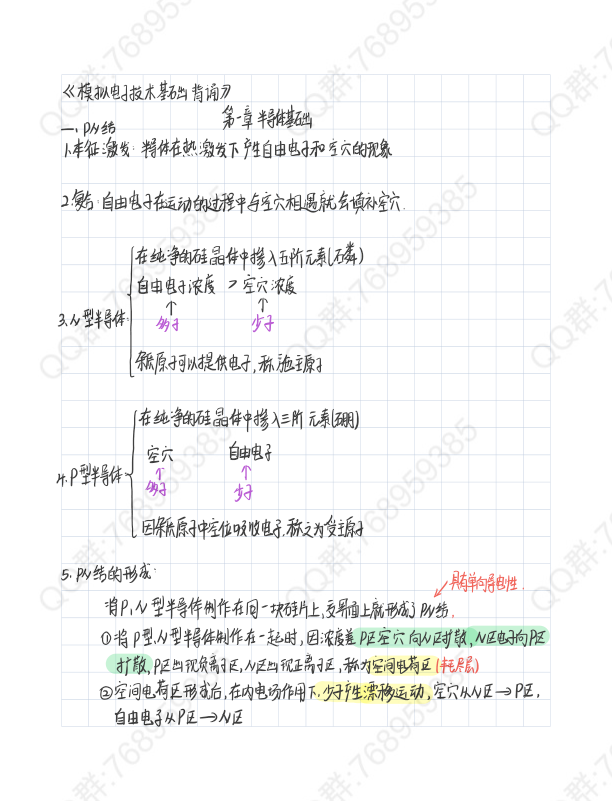 《模拟电子技术基础 背诵》
第一章 半导体基础
一、PN结
1.本征激发: 半导体在热激发下产生自由电子和空穴的现象
2.复合: 自由电子在运动的过程中与空穴相遇就会填补空穴.
在纯净的硅晶体中掺入五阶元素(磷)
自由电子浓度 > 空穴浓度
3.N型半导体:
多子 少子
杂质原子可以提供电子,称施主原子
在纯净的硅晶体中掺入三阶元素(硼)
空穴 自由电子
4.P型半导体
多子 少子
因杂质原子中空位吸收电子.称之为受主原子
5.PN结的形成:
具有单向导电性.
将P、N型半导体制作在同一块硅片上,交界面上就形成了PN结.
①将P型、N型半导体制作在一起时,因浓度差 P区空穴向N区扩散,N区电子向P区
扩散,P区出现负离子区,N区出现正离子区,称为空间电荷区(耗尽层)
②空间电荷区形成后,在内电场作用下.少子产生漂移运动,空穴从N区→P区,
自由电子从P区→N区
QQ群:768959385